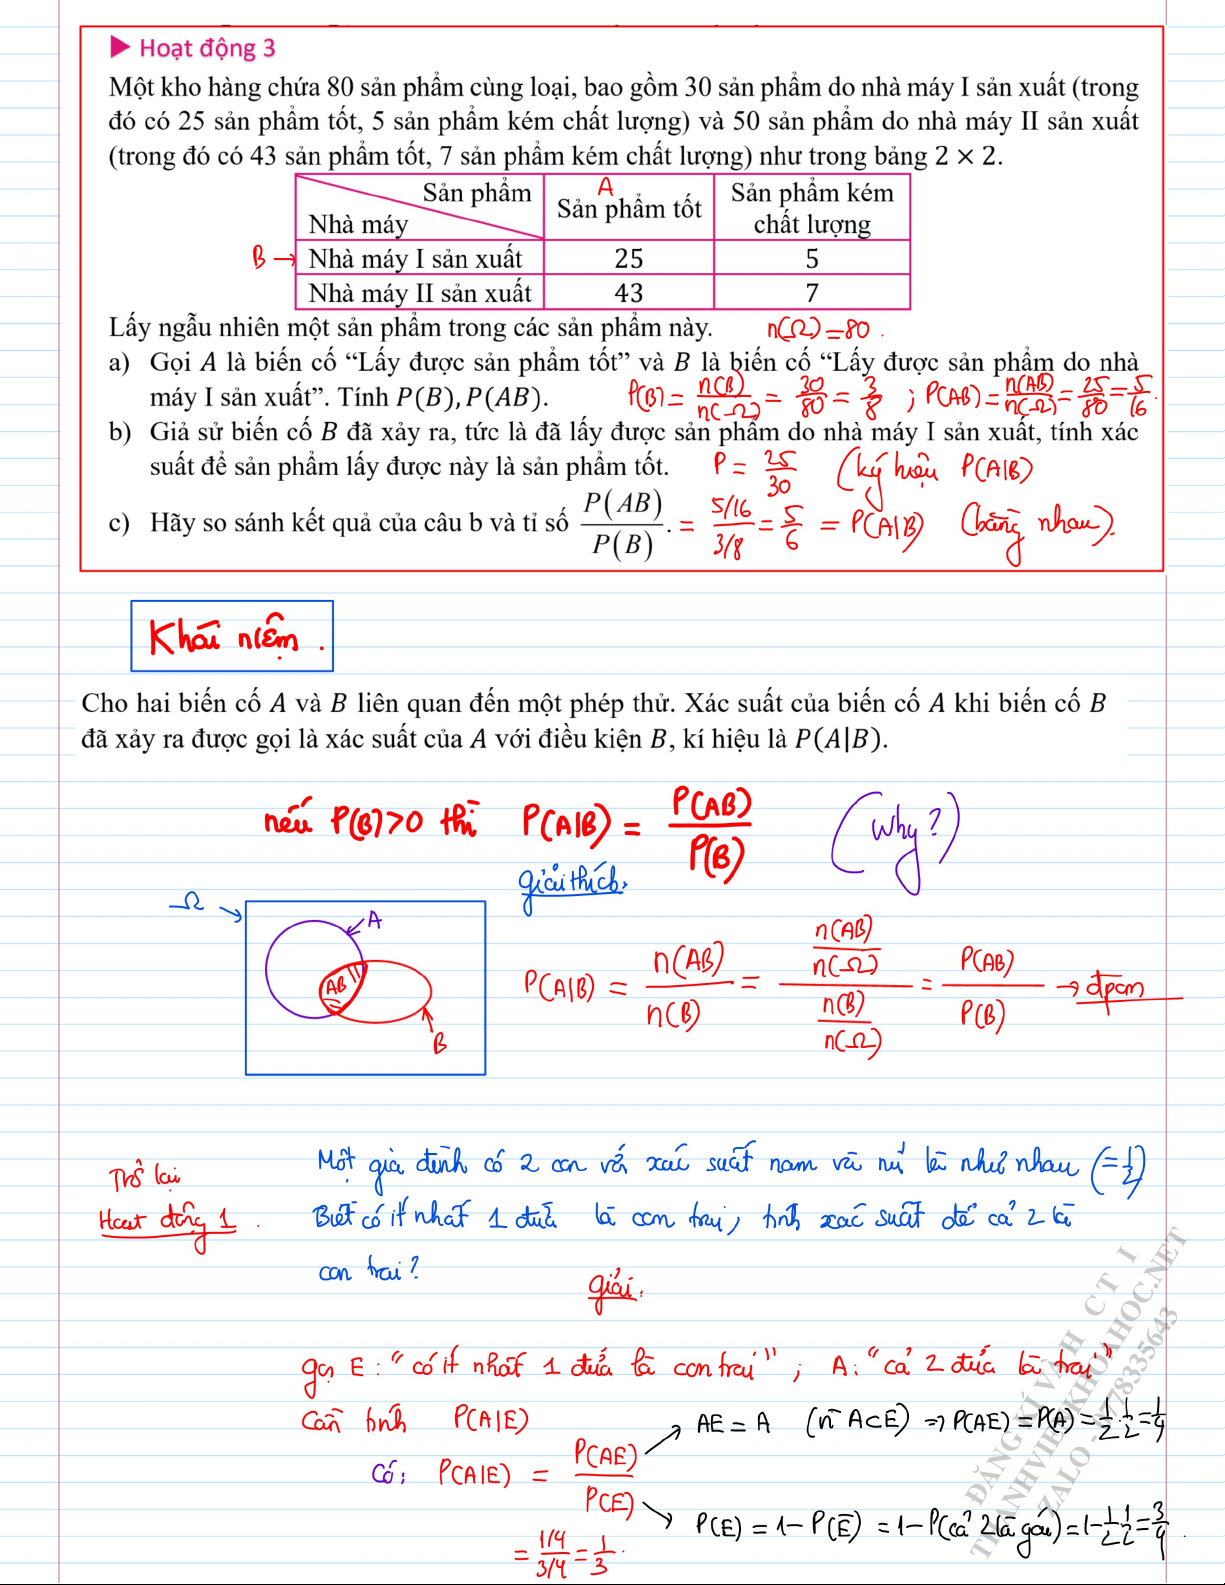 ▶ Hoạt động 3
Một kho hàng chứa 80 sản phẩm cùng loại, bao gồm 30 sản phẩm do nhà máy I sản xuất (trong
đó có 25 sản phẩm tốt, 5 sản phẩm kém chất lượng) và 50 sản phẩm do nhà máy II sản xuất
(trong đó có 43 sản phẩm tốt, 7 sản phẩm kém chất lượng) như trong bảng 2 × 2.
Sản phẩm A Sản phẩm tốt Sản phẩm kém
Nhà máy chất lượng
B → Nhà máy I sản xuất 25 5
Nhà máy II sản xuất 43 7
Lấy ngẫu nhiên một sản phẩm trong các sản phẩm này. n(Ω) = 80.
a) Gọi A là biến cố “Lấy được sản phẩm tốt” và B là biến cố “Lấy được sản phẩm do nhà
máy I sản xuất”. Tính P(B), P(AB). P(B) = n(B)/n(Ω) = 30/80 = 3/8 ; P(AB) = n(AB)/n(Ω) = 25/80 = 5/16.
b) Giả sử biến cố B đã xảy ra, tức là đã lấy được sản phẩm do nhà máy I sản xuất, tính xác
suất để sản phẩm lấy được này là sản phẩm tốt. P = 25/30 (ký hiệu P(A|B)
c) Hãy so sánh kết quả của câu b và tỉ số P(AB)/P(B). = (5/16)/(3/8) = 5/6 = P(A|B) (bằng nhau).
Khái niệm.
Cho hai biến cố A và B liên quan đến một phép thử. Xác suất của biến cố A khi biến cố B
đã xảy ra được gọi là xác suất của A với điều kiện B, kí hiệu là P(A|B).
nếu P(B)>0 thì P(A|B) = P(AB)/P(B) (Why?)
giải thích:
Ω → A
AB
B
P(A|B) = n(AB)/n(B) = (n(AB)/n(Ω))/(n(B)/n(Ω)) = P(AB)/P(B) → đpcm
Trở lại
Hoạt động 1.
Một gia đình có 2 con với xác suất nam và nữ là như nhau (=1/2)
Biết có ít nhất 1 đứa là con trai, tính xác suất để cả 2 là
con trai?
giải.
gọi E: “có ít nhất 1 đứa là con trai” ; A: “cả 2 đứa là trai”
Cần tính P(A|E)
Có: P(A|E) = P(AE)/P(E)
→ AE = A (vì A⊂E) ⇒ P(AE) = P(A) = 1/2.1/2 = 1/4
→ P(E) = 1 − P(E̅) = 1 − P(cả 2 là gái) = 1 − 1/2.1/2 = 3/4.
= (1/4)/(3/4) = 1/3.
ĐĂNG KÍ VÀ H CT I
THANHVIETKHOAHOC.NET